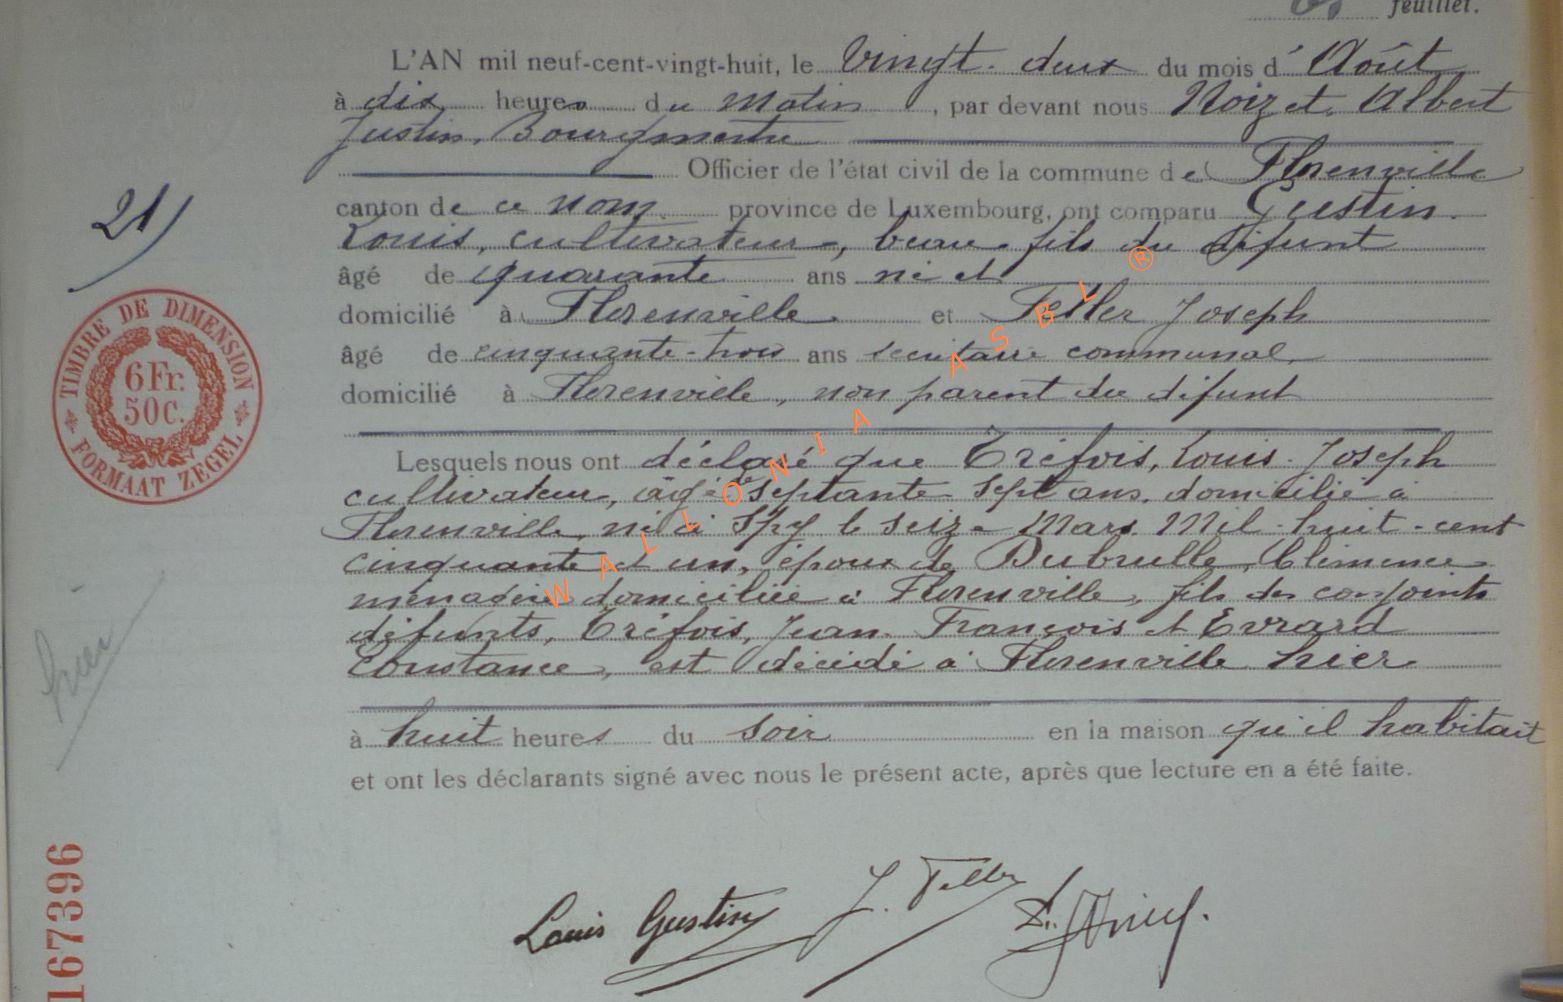 feuillet.
L'AN mil neuf-cent-vingt-huit, le Vingt-deux du mois d' Août
à dix heures du Matin, par devant nous Noizet, Albert
Justin, Bourgmestre
Officier de l'état civil de la commune de Florenville
canton de ce nom province de Luxembourg, ont comparu Gustin
21)
Louis, cultivateur, beau-fils du défunt
âgé de quarante ans né et
domicilié à Florenville et Feller Joseph
âgé de cinquante-trois ans secrétaire communal,
domicilié à Florenville, non parent du défunt
TIMBRE DE DIMENSION
6Fr.
50C.
FORMAAT ZEGEL
Lesquels nous ont déclaré que Tréfois, Louis-Joseph
cultivateur, âgé de septante-sept ans, domicilié à
Florenville, né à Spy le seize Mars Mil-huit-cent
cinquante et un, époux de Dubrulle, Clémence
ménagère domiciliée à Florenville, fils des conjoints
défunts, Tréfois, Jean-François et Evrard
Constance, est décédé à Florenville hier
hier
à huit heures du soir en la maison qu'il habitait
et ont les déclarants signé avec nous le présent acte, après que lecture en a été faite.
Louis Gustin J. Feller
167396
WALLONIA ASBL ®